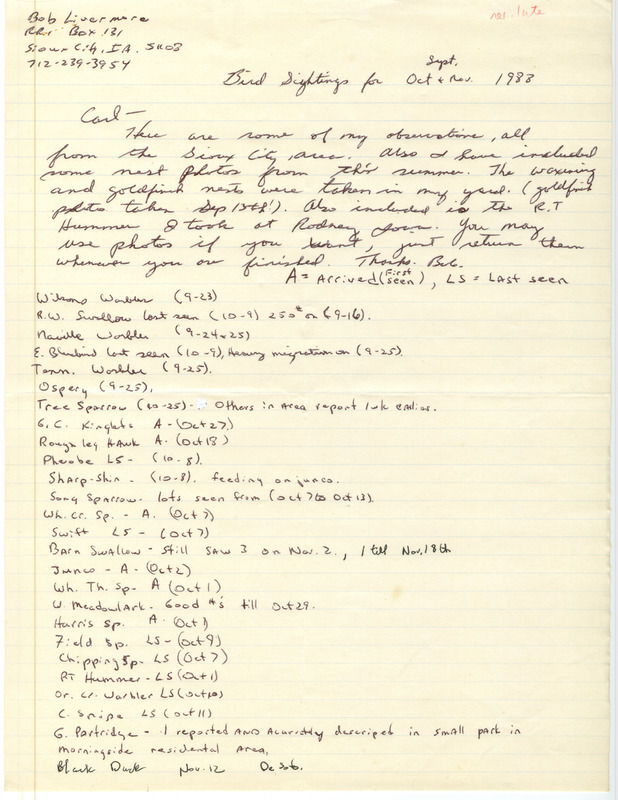 Bob Livermore
RR1 Box 131
Sioux City, IA. 51108
712-239-3954
rec. late
Sept.
Bird Sightings for Oct & Nov. 1983
Carl —
These are some of my observations, all
from the Sioux City area. Also I have included
some nest photos from this summer. The waxwing
and goldfinch nests were taken in my yard. (goldfinch
photo taken Sep 13th!). Also included is the R.T
Hummer I took at Rodney Iowa. You may
use photos if you want, just return them
whenever you are finished. Thanks. Bob.
A = Arrived (First seen), LS = Last seen
Wilsons Warbler (9-23)
R.W. Swallow last seen (10-9) 250+ on (9-16).
Naville Warbler (9-24+25)
E. Bluebird last seen (10-9), Heavy migration on (9-25).
Tenn. Warbler (9-25).
Ospery (9-25),
Tree Sparrow (10-25) - Others in area report 1wk earlier.
G.C. Kinglets A - (Oct 27)
Rough leg Hawk A. (Oct 18)
Pheobe LS - (10-8).
Sharp-shin - (10-8). feeding on junco.
Song Sparrow - lots seen from (Oct 7 to Oct 13).
Wh. Cr. Sp. - A. (Oct 7)
Swift LS - (Oct 7)
Barn Swallow - Still saw 3 on Nov. 2., 1 till Nov. 18th
Junco - A - (Oct 2)
Wh. Th. Sp - A (Oct 1)
W. Meadowlark - Good #'s till Oct 29.
Harris Sp. A. (Oct 1)
Field Sp. LS - (Oct 9)
Chipping Sp. LS (Oct 7)
RT Hummer - LS (Oct 1)
Or. Cr. Warbler LS (Oct 10)
C. Snipe LS (Oct 11)
G. Partridge - 1 reported AND Acurately descriped in small park in
morningside residental area,
Black Duck Nov. 12 DeSoto.